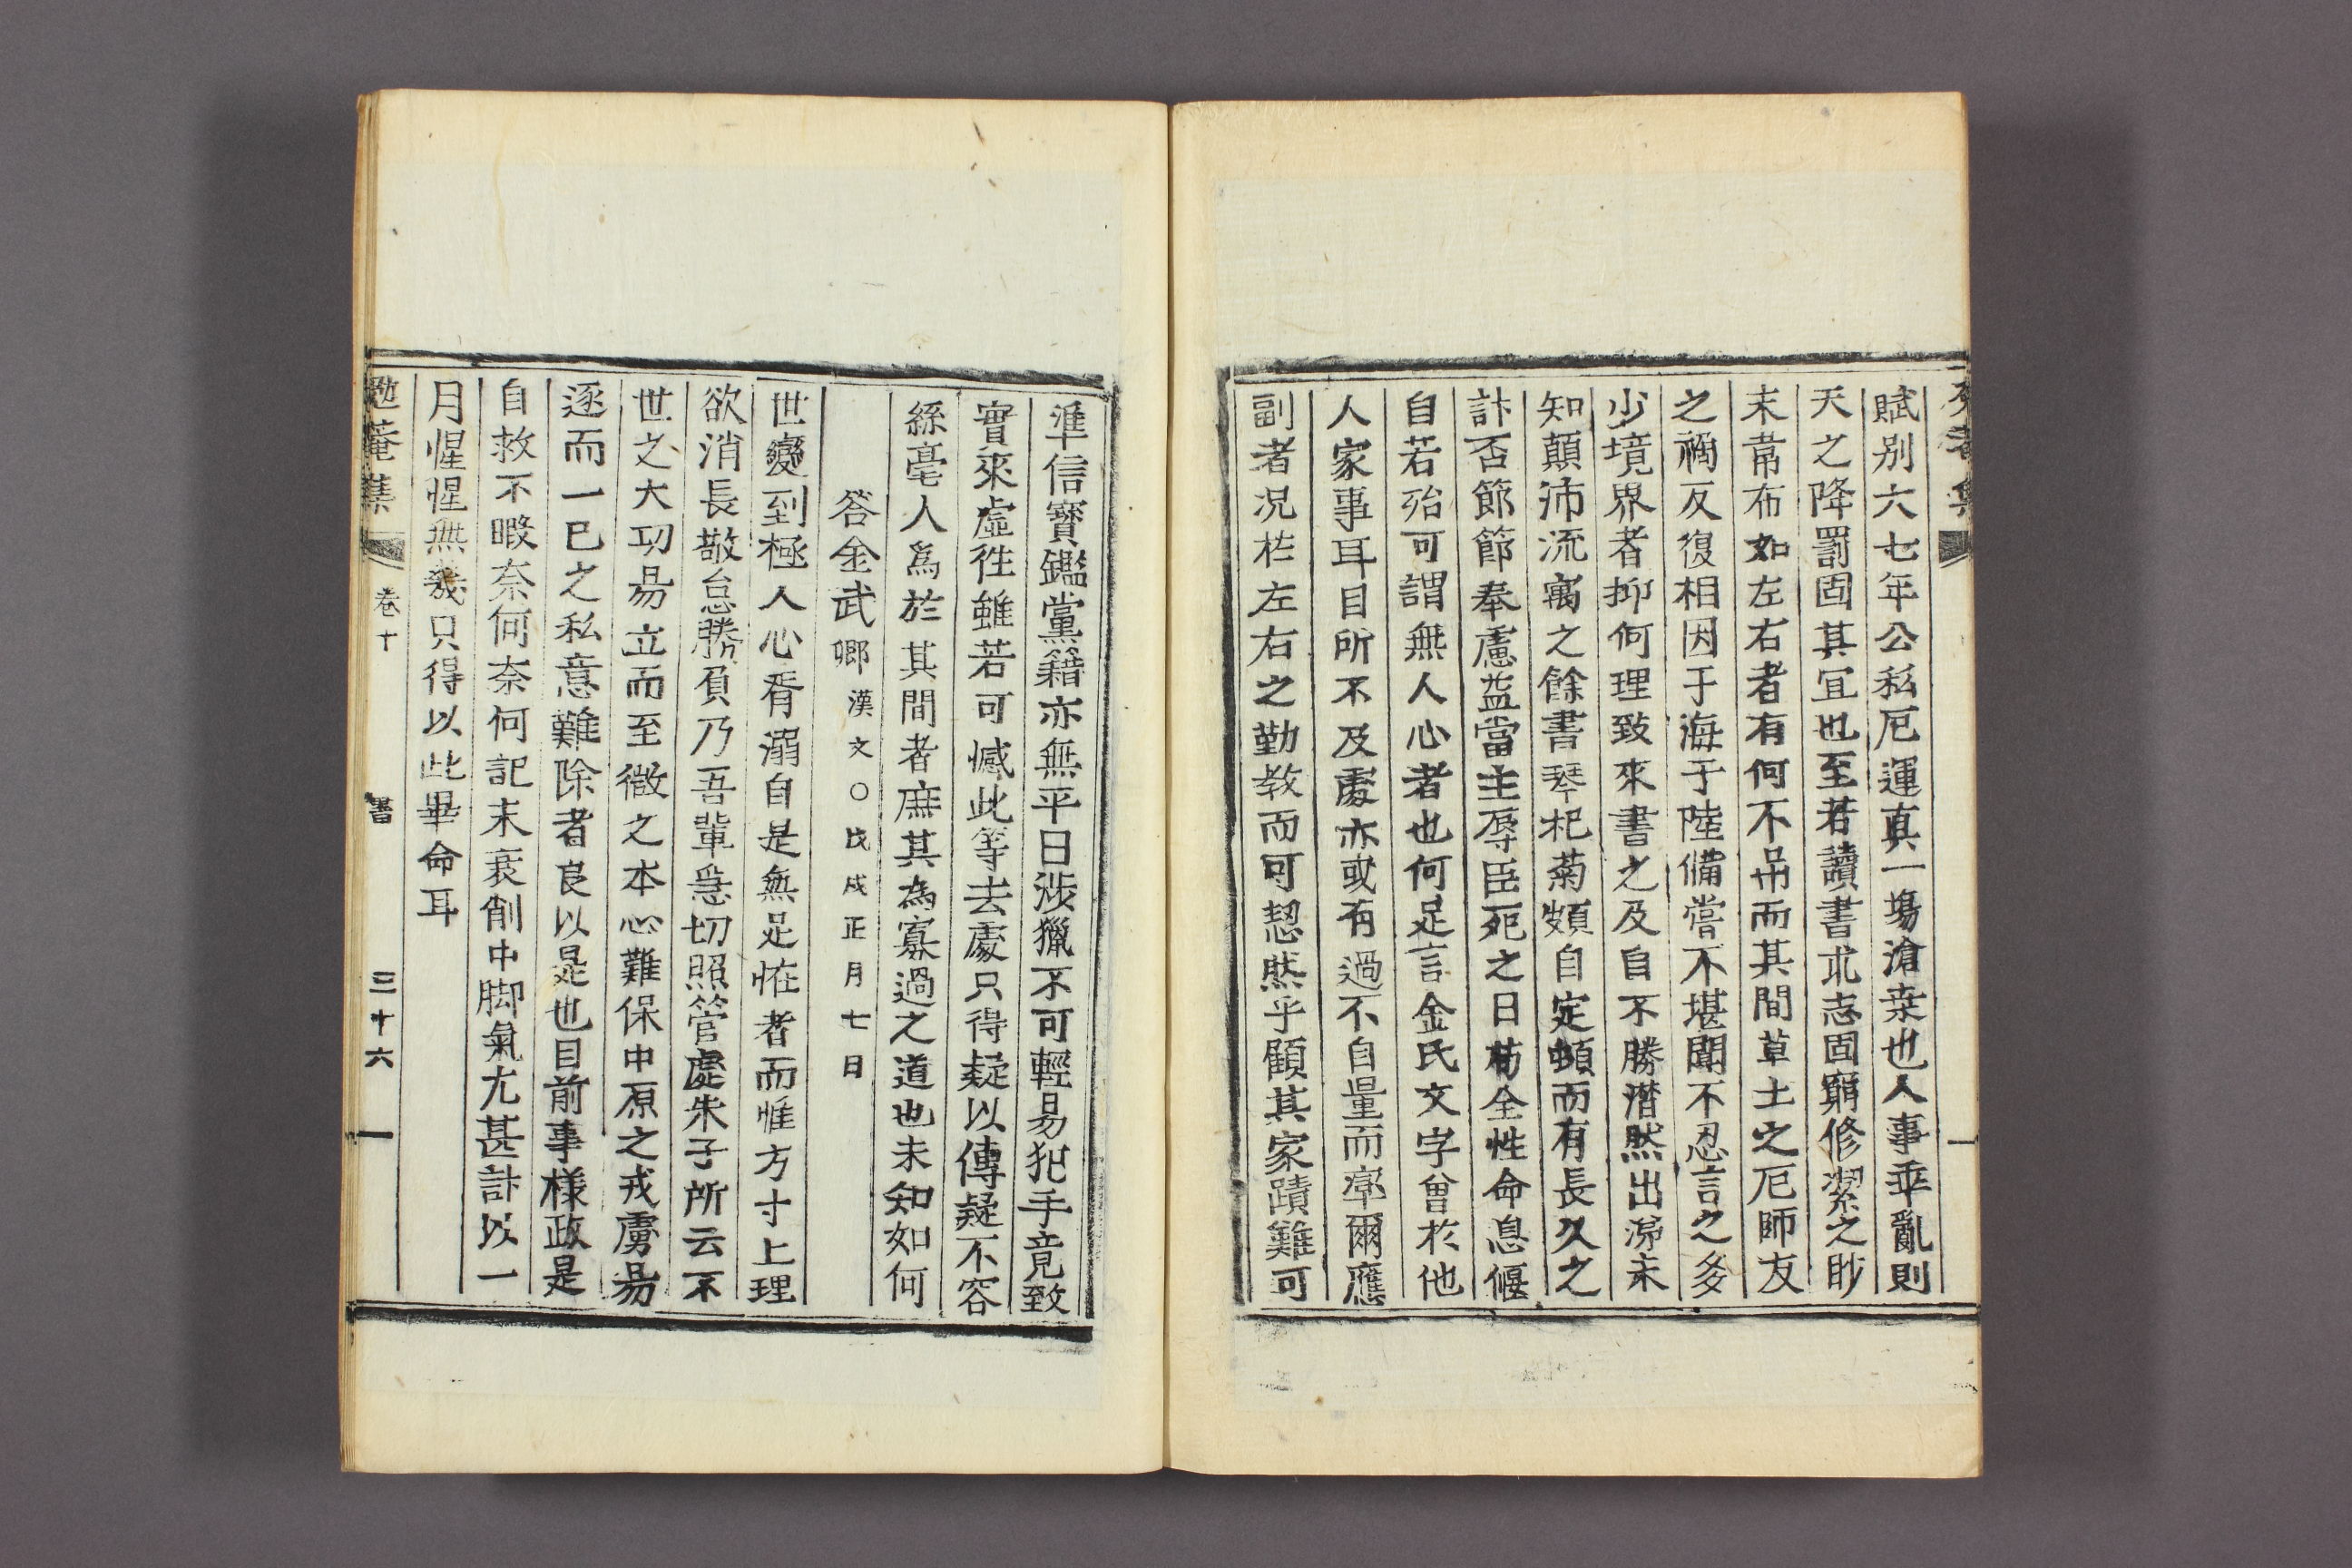 賦別六七年公私厄運真一場滄桒也人事乖亂則
天之降罰固其宜也至若讀書求志固窮修潔之眇
末韋布如左右者有何不吊而其間草土之厄師友
之禍反復相因于海于陸備嘗不堪聞不忍言之多
少境界者抑何理致來書之及自不勝潛然出涕未
知顛沛流寓之餘書琴杞菊頗自定頓而有長久之
計否節節奉慮益當主辱臣死之日苟全性命息偃
自若殆可謂無人心者也何足言金氏文字曾於他
人家事耳目所不及處亦或有過不自量而率爾應
副者況在左右之勤教而可恝然乎顧其家蹟難可
準信寶鑑黨籍亦無平日涉獵不可輕易犯手竟致
實來虛徃雖若可憾此等去處只得疑以傳疑不容
絲毫人爲於其間者庶其為寡過之道也未知如何
答金武卿漢文○戊戌正月七日
世變到極人心胥溺自是無足恠者而惟方寸上理
欲消長敬怠勝負乃吾輩急切照管處朱子所云不
世之大功易立而至微之本心難保中原之戎虜易
逐而一已之私意難除者良以是也目前事樣政是
自救不暇奈何奈何記末衰削中脚氣尤甚計以一
月惺惺無幾只得以此畢命耳
勉菴集 卷十 書 三十六